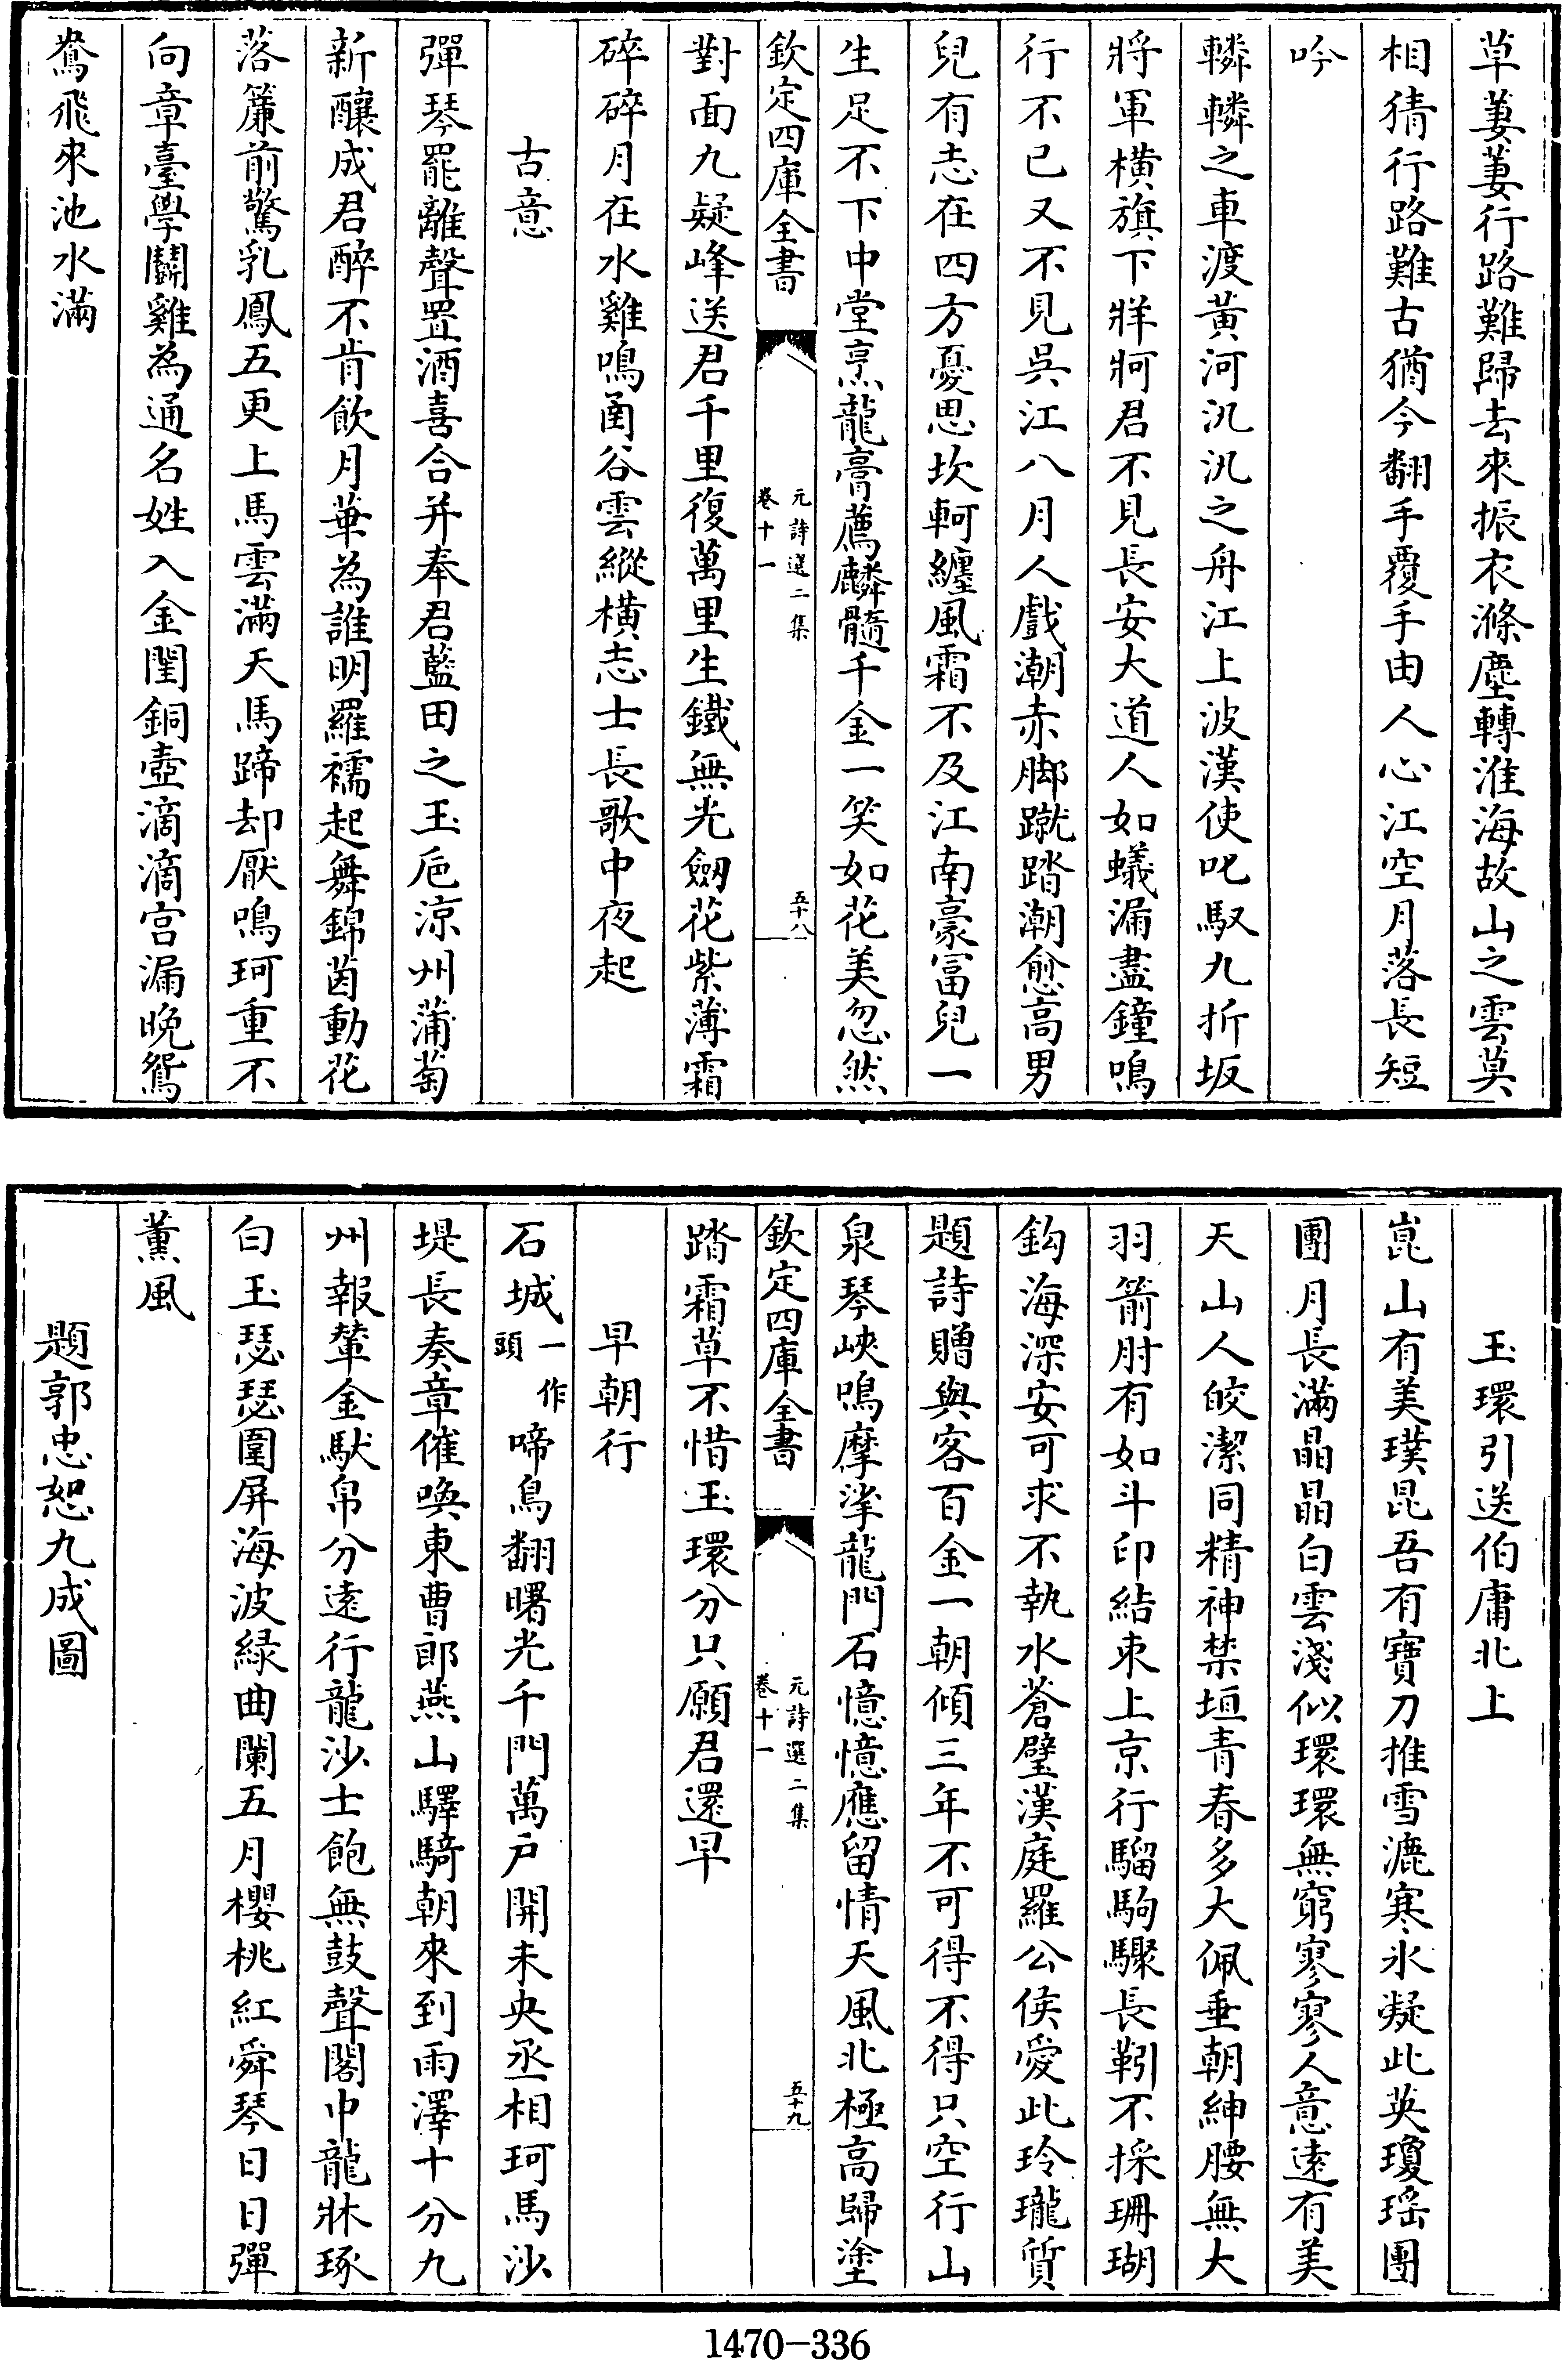 草萋萋行路難歸去來振衣滌塵轉淮海故山之雲莫
相猜行路難古猶今翻手覆手由人心江空月落長短
吟
轔轔之車渡黃河汎汎之舟江上波漢使叱馭九折坂
將軍橫旗下牂牁君不見長安大道人如蟻漏盡鐘鳴
行不已又不見吳江八月人戲潮赤脚蹴踏潮愈高男
兒有志在四方憂思坎軻纏風霜不及江南豪富兒一
生足不下中堂烹龍膏薦麟髓千金一笑如花美忽然
欽定四庫全書
元詩選二集
卷十一
五十八
對面九疑峰送君千里復萬里生鐵無光劒花紫薄霜
碎碎月在水雞鳴函谷雲縱橫志士長歌中夜起
古意
彈琴罷離聲置酒喜合并奉君藍田之玉巵涼州蒲萄
新釀成君醉不肯飲月華為誰明羅襦起舞錦茵動花
落簾前驚乳鳳五更上馬雲滿天馬蹄却厭鳴珂重不
向章臺學鬭雞為通名姓入金閨銅壺滴滴宫漏晚鴛
鴦飛來池水滿
玉環引送伯庸北上
崑山有美璞昆吾有寶刀推雪漉寒氷凝此英瓊瑶團
團月長滿晶晶白雲淺似環環無窮寥寥人意遠有美
天山人皎潔同精神禁垣青春多大佩垂朝紳腰無大
羽箭肘有如斗印結束上京行騮駒驟長靷不採珊瑚
鈎海深安可求不執水蒼璧漢庭羅公侯愛此玲瓏質
題詩贈與客百金一朝傾三年不可得不得只空行山
泉琴峽鳴摩挲龍門石憶憶應留情天風北極高歸塗
欽定四庫全書
元詩選二集
卷十一
五十九
踏霜草不惜玉環分只願君還早
早朝行
石城一作頭啼烏翻曙光千門萬戶開未央丞相珂馬沙
堤長奏章催喚東曹郎燕山驛騎朝來到雨澤十分九
州報輦金馱帛分遠行龍沙士飽無鼓聲閣中龍牀琢
白玉瑟瑟圍屏海波緑曲闌五月櫻桃紅舜琴日日彈
薰風
題郭忠恕九成圖
1470-336